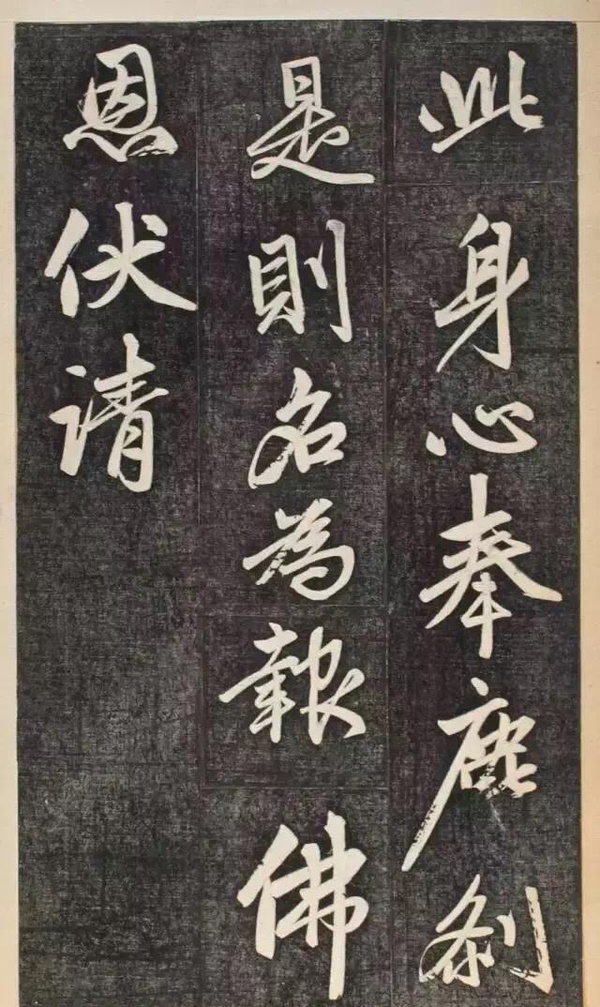 此身心奉塵剎
是則名為報佛
恩伏请